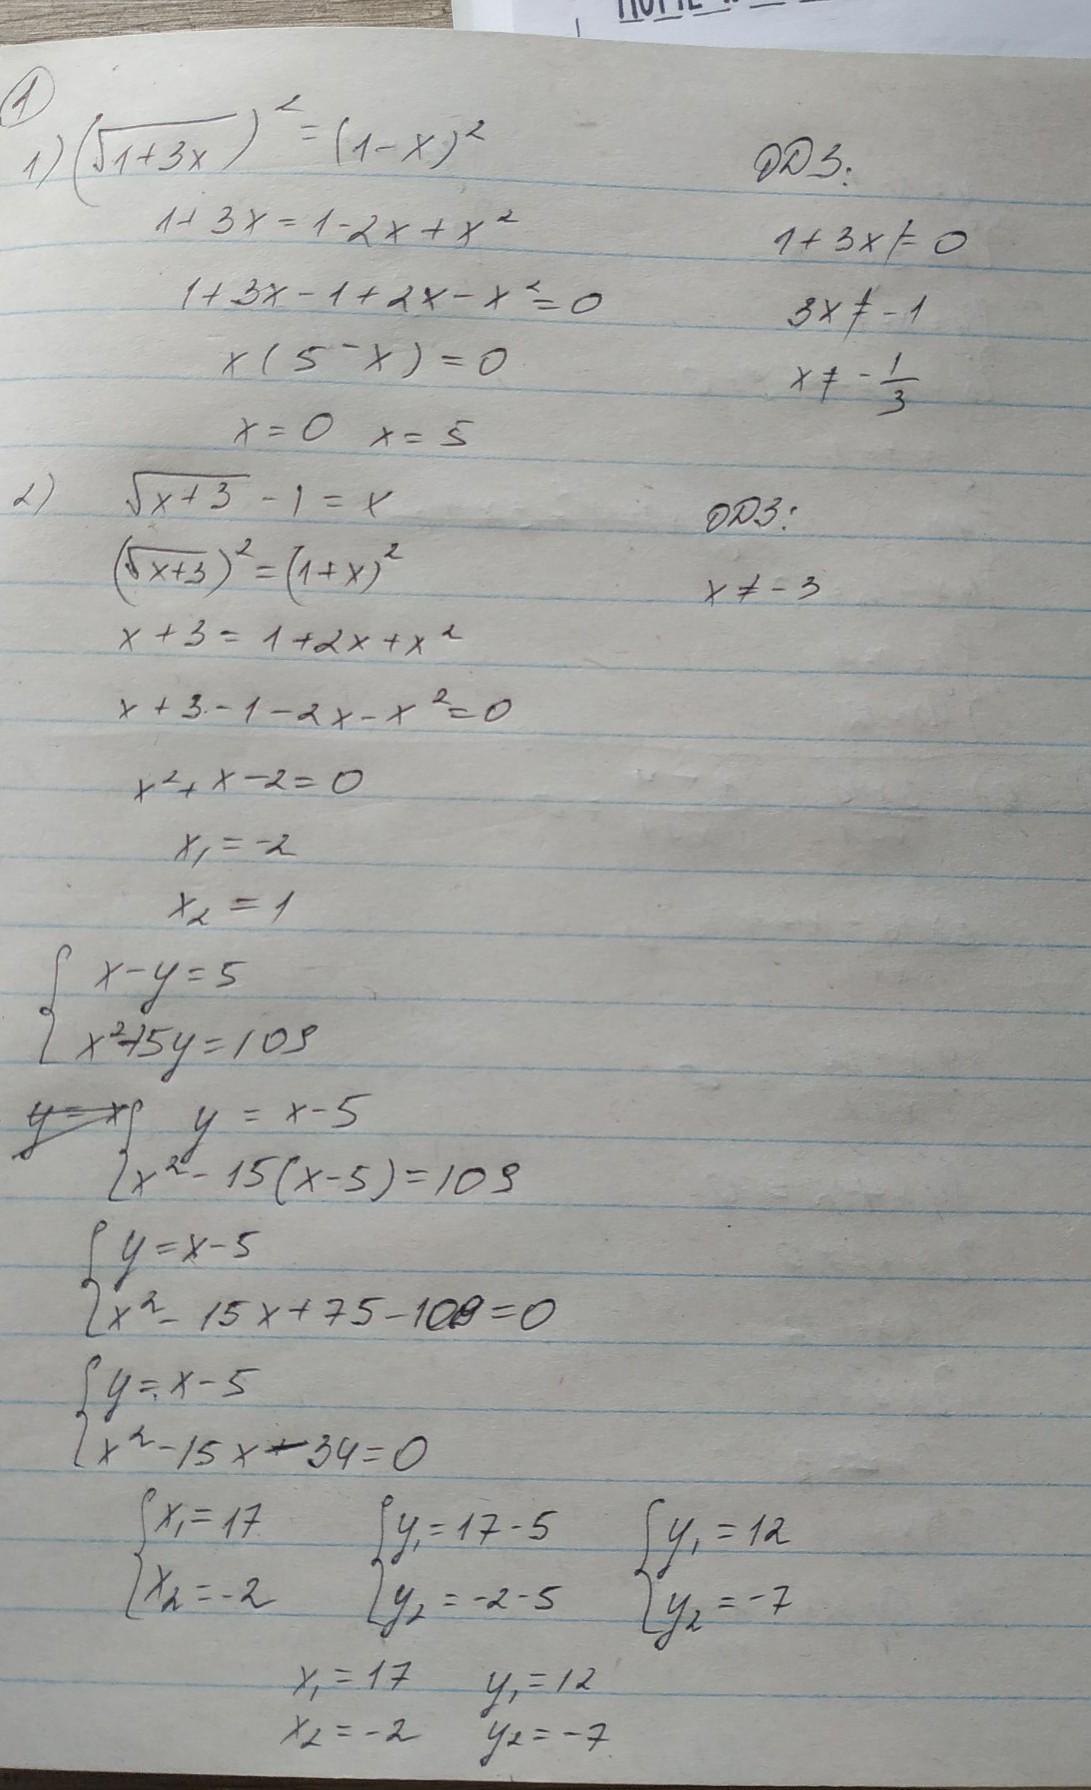 1
1) (√1+3x)² = (1-x)²
ОДЗ:
1+3x = 1-2x+x²
1+3x ≠ 0
1+3x-1+2x-x²=0
3x ≠ -1
x(5-x)=0
x ≠ -1/3
x=0 x=5
2) √x+3 - 1 = x
ОДЗ:
(√x+3)² = (1+x)²
x ≠ -3
x+3 = 1+2x+x²
x+3-1-2x-x²=0
x²+x-2=0
x₁ = -2
x₂ = 1
x-y=5
x²-15y=109
y = x-5
x²-15(x-5)=109
y=x-5
x²-15x+75-109=0
y=x-5
x²-15x-34=0
x₁=17 y₁=17-5 y₁=12
x₂=-2 y₂=-2-5 y₂=-7
x₁=17 y₁=12
x₂=-2 y₂=-7